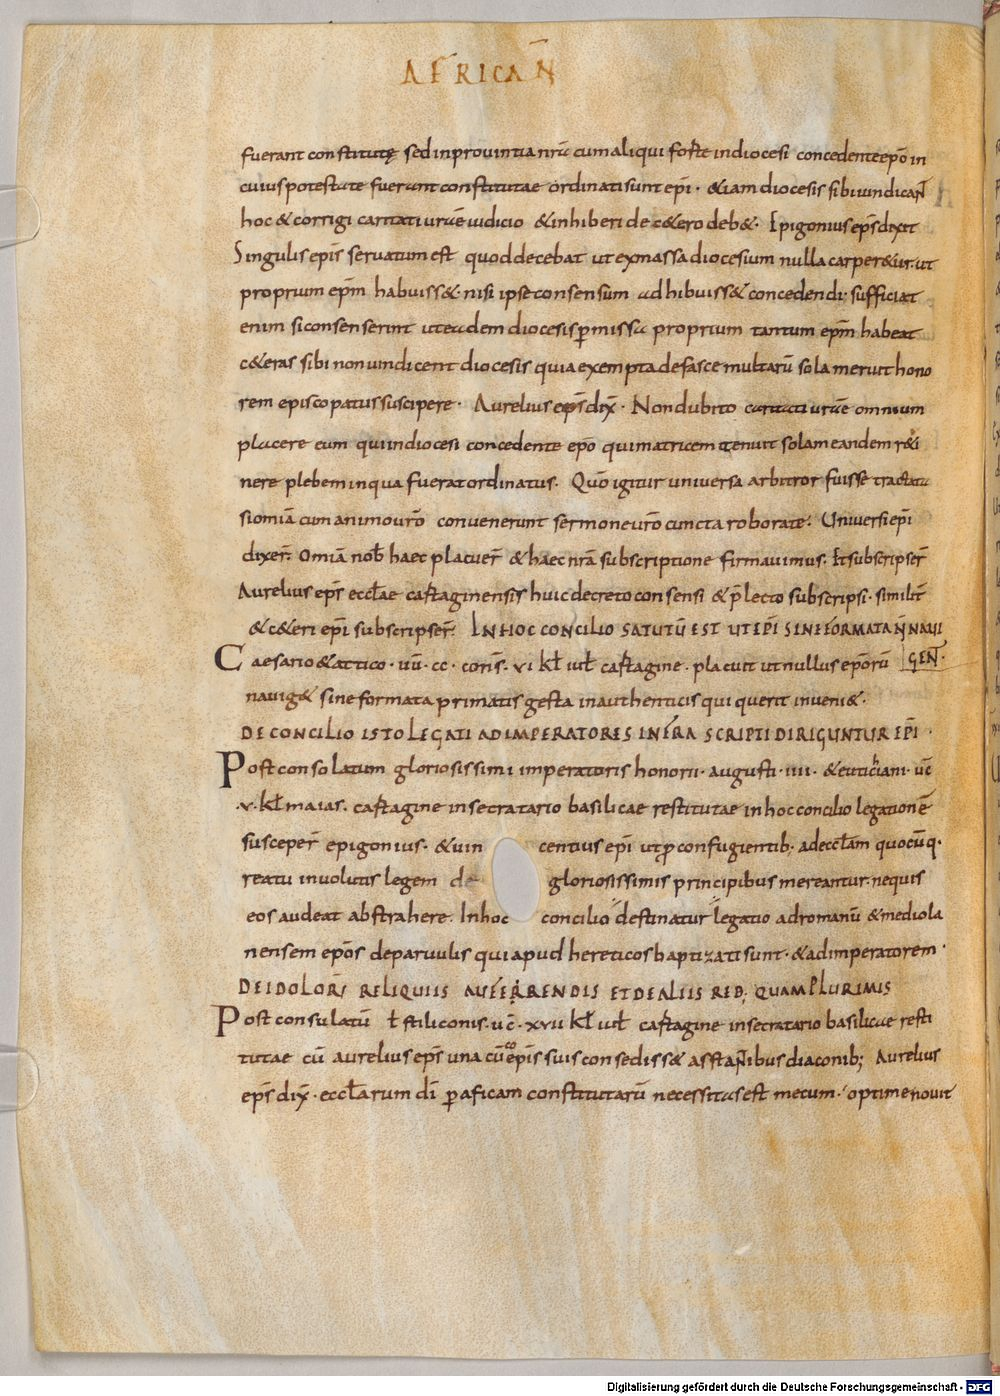 AFRICAN̄
fuerant constitutę sed in provintia nr̄a cum aliqui forte in diocesi concedente ep̄o in
cuius potestate fuerant constitutae ordinati sunt ep̄i · &iam diocesis sibi uindican̄
hoc & corrigi caritati urāe uidicio & inhiberi de c&ero deb& · Epigonius ep̄s dixit
Singulis ep̄is seruatum est quod decebat ut ex massa diocesium nulla carper&ur · ut
proprium ep̄m habuiss& · nisi ipse consensum adhibuiss& concedendi · sufficiat
enim si consenserint ut eadem diocesis p̄missa proprium tantum ep̄m habeat
c&eras sibi non uindicent diocesis quia exempta de fasce multarū sola meruit hono
rem episcopatus suscipere · Aurelius ep̄s dix̄ · Non dubito caritati urāe omnium
placere eum qui in diocesi concedente ep̄o qui matricem tenuit solam eandem r&i
nere plebem in qua fuerat ordinatus · Quō igitur universa arbitror fuisse tractata
si omīa cum animo uro᷄ convenerunt sermone uro᷄ cuncta roborate · Universi ep̄i
dixer̄ · Omīa nob̄ haec placuer̄ & haec nrā subscriptione firmavimus · Et subscripser̄
Aurelius ep̄s eccl̄ae cartaginensis huic decreto consensi & p̄lecto subscripsi · similit̄
& c&eri ep̄i subscripser̄ · IN HOC CONCILIO SATUTŪ EST UT EP̄I SINE FORMATA N̄ NAUI
Caesario & attico · uū · cc · cons̄ · vi kl̄ iul̄ cartagine · placuit ut nullus ep̄orū GEN̄ ·
navig& sine formata primatis gesta in authenticis qui querit inveni& ·
DE CONCILIO ISTO LEGATI AD IMPERATORES INFRA SCRIPTI DIRIGUNTUR EP̄I ·
Post consolatum gloriosissimi imperatoris honorii · augusti · iiii · & euticiani · uc̄
· v · kl̄ maias · cartagine in secratario basilicae restitutae in hoc concilio legationē
susceper̄ epigonius · & uincentius ep̄i ut p̄ confugientib; ad eccl̄am quocūq ·
reatu involutis legem de gloriosissimis principibus mereantur · nequis
eos audeat abstrahere · In hoc concilio destinatur legatio ad romanū & mediola
nensem ep̄os de parvulis qui apud hereticos baptizati sunt · & ad imperatorem ·
DE IDOLORŪ RELIQUIIS AUFERRENDIS ET DE ALIIS REB; QUAM PLURIMIS
Post consulatū fl̄ stiliconis · uc̄ · xvii kl̄ iul̄ cartagine in secratario basilicae resti
tutae cū aurelius ep̄s una cū coep̄is suis consediss& asstan̄ibus diaconib; Aurelius
ep̄s dix̄ · eccl̄arum dī p̄ aficam constitutarū necessitas est mecum · optime novit
Digitalisierung gefördert durch die Deutsche Forschungsgemeinschaft - DFG